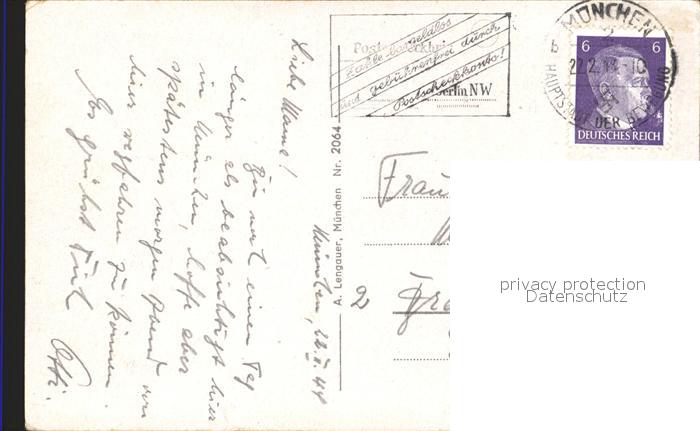 München, 22.2.44
Liebe Mama!
Bin noch einen Tag
länger als beabsichtigt hier
in München, hoffe aber
spätestens morgen Abend von
hier wegfahren zu können.
Es grüßt Dich
Otti.
A. Lengauer, München Nr. 2064
Zahle bargeldlos
und gebührenfrei durch
Postscheckkonto!
Berlin NW
MÜNCHEN 2
b
22.2.44-10
HAUPTSTADT DER BEWEGUNG
6 6
DEUTSCHES REICH
Frau
2
privacy protection
Datenschutz